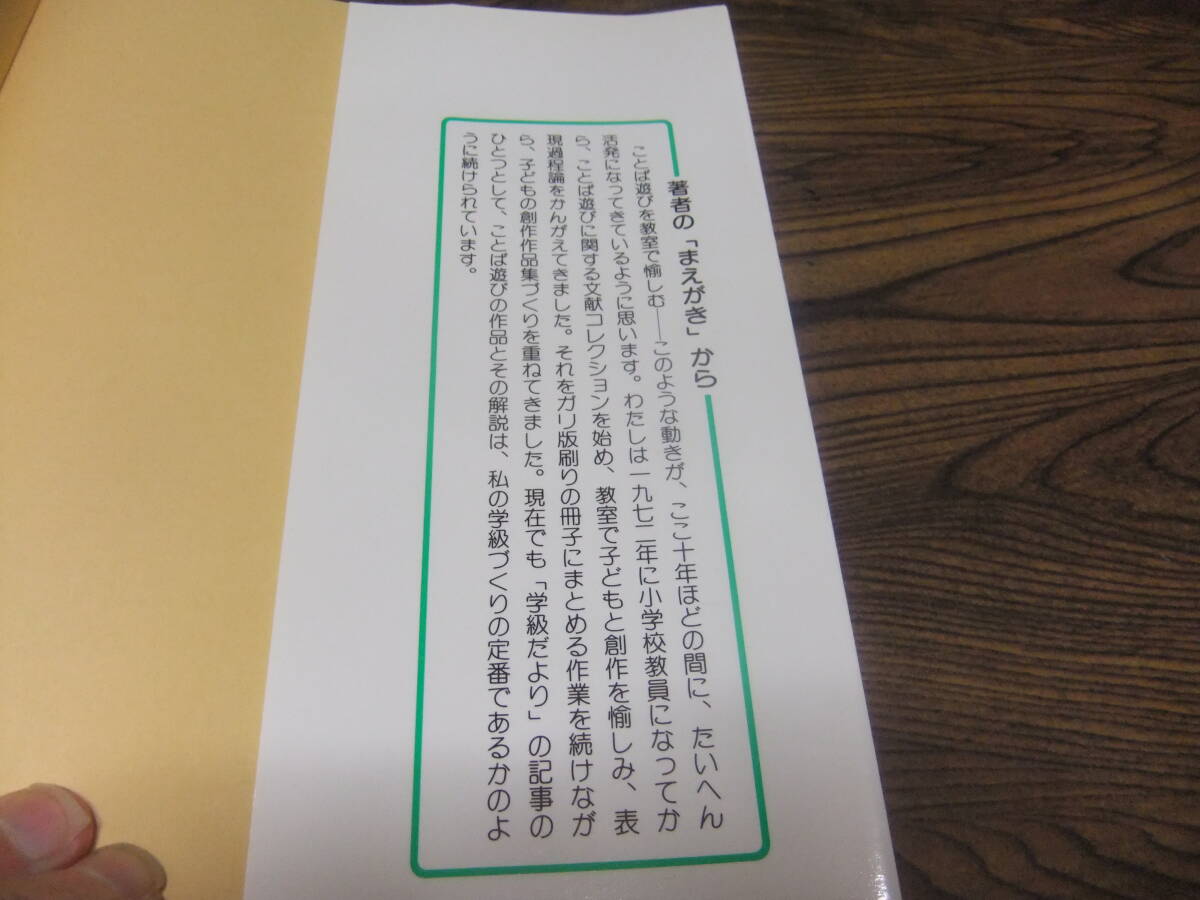 著者の「まえがき」から
ことば遊びを教室で愉しむ――このような動きが、ここ十年ほどの間に、たいへん
活発になってきているように思います。わたしは一九七二年に小学校教員になってか
ら、ことば遊びに関する文献コレクションを始め、教室で子どもと創作を愉しみ、表
現過程論をかんがえてきました。それをガリ版刷りの冊子にまとめる作業を続けなが
ら、子どもの創作作品集づくりを重ねてきました。現在でも「学級だより」の記事の
ひとつとして、ことば遊びの作品とその解説は、私の学級づくりの定番であるかのよ
うに続けられています。